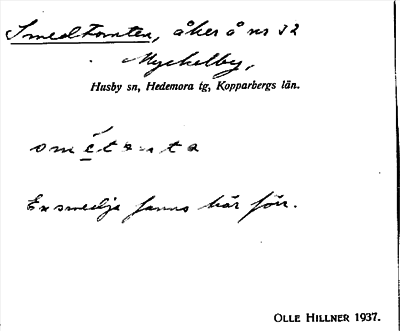 Smedtomten, åker å nr 32
Myckelby,
Husby sn, Hedemora tg, Kopparbergs län.
En smedja fanns här förr.
OLLE HILLNER 1937.